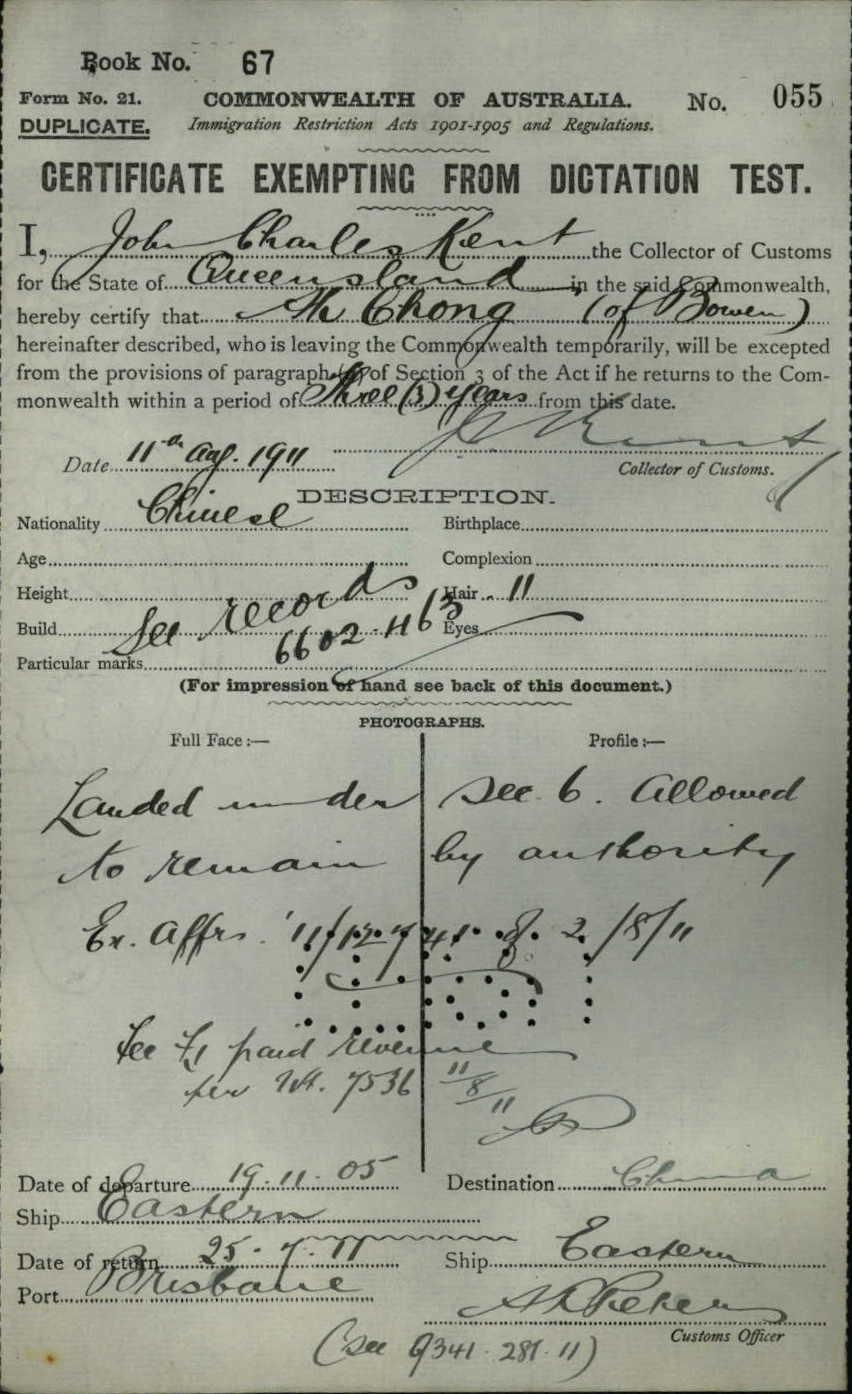 Book No. 67
Form No. 21. COMMONWEALTH OF AUSTRALIA. No. 055
DUPLICATE. Immigration Restriction Acts 1901-1905 and Regulations.
CERTIFICATE EXEMPTING FROM DICTATION TEST.
I, John Charles Kent the Collector of Customs
for the State of Queensland, in the said Commonwealth,
hereby certify that Ah Chong (of Bowen)
hereinafter described, who is leaving the Commonwealth temporarily, will be excepted
from the provisions of paragraph of Section 3 of the Act if he returns to the Com-
monwealth within a period of Three (3) years from this date.
Date 11th Aug. 1911
Collector of Customs.
DESCRIPTION.
Nationality Chinese Birthplace
Age Complexion
Height Hair
Build See records Eyes
6602
Particular marks
(For impression of hand see back of this document.)
PHOTOGRAPHS.
Full Face :— Profile :—
Landed under Sec 6. Allowed
to remain by authority
Ex. Affrs. '11/12741 of 2/8/11
Fee £1 paid revenue
per 7536 11/8/11
Date of departure 19.11.05 Destination China
Ship Eastern
Date of return 25.7.11 Ship Eastern
Port Brisbane
Customs Officer
(see 9341.281.11)